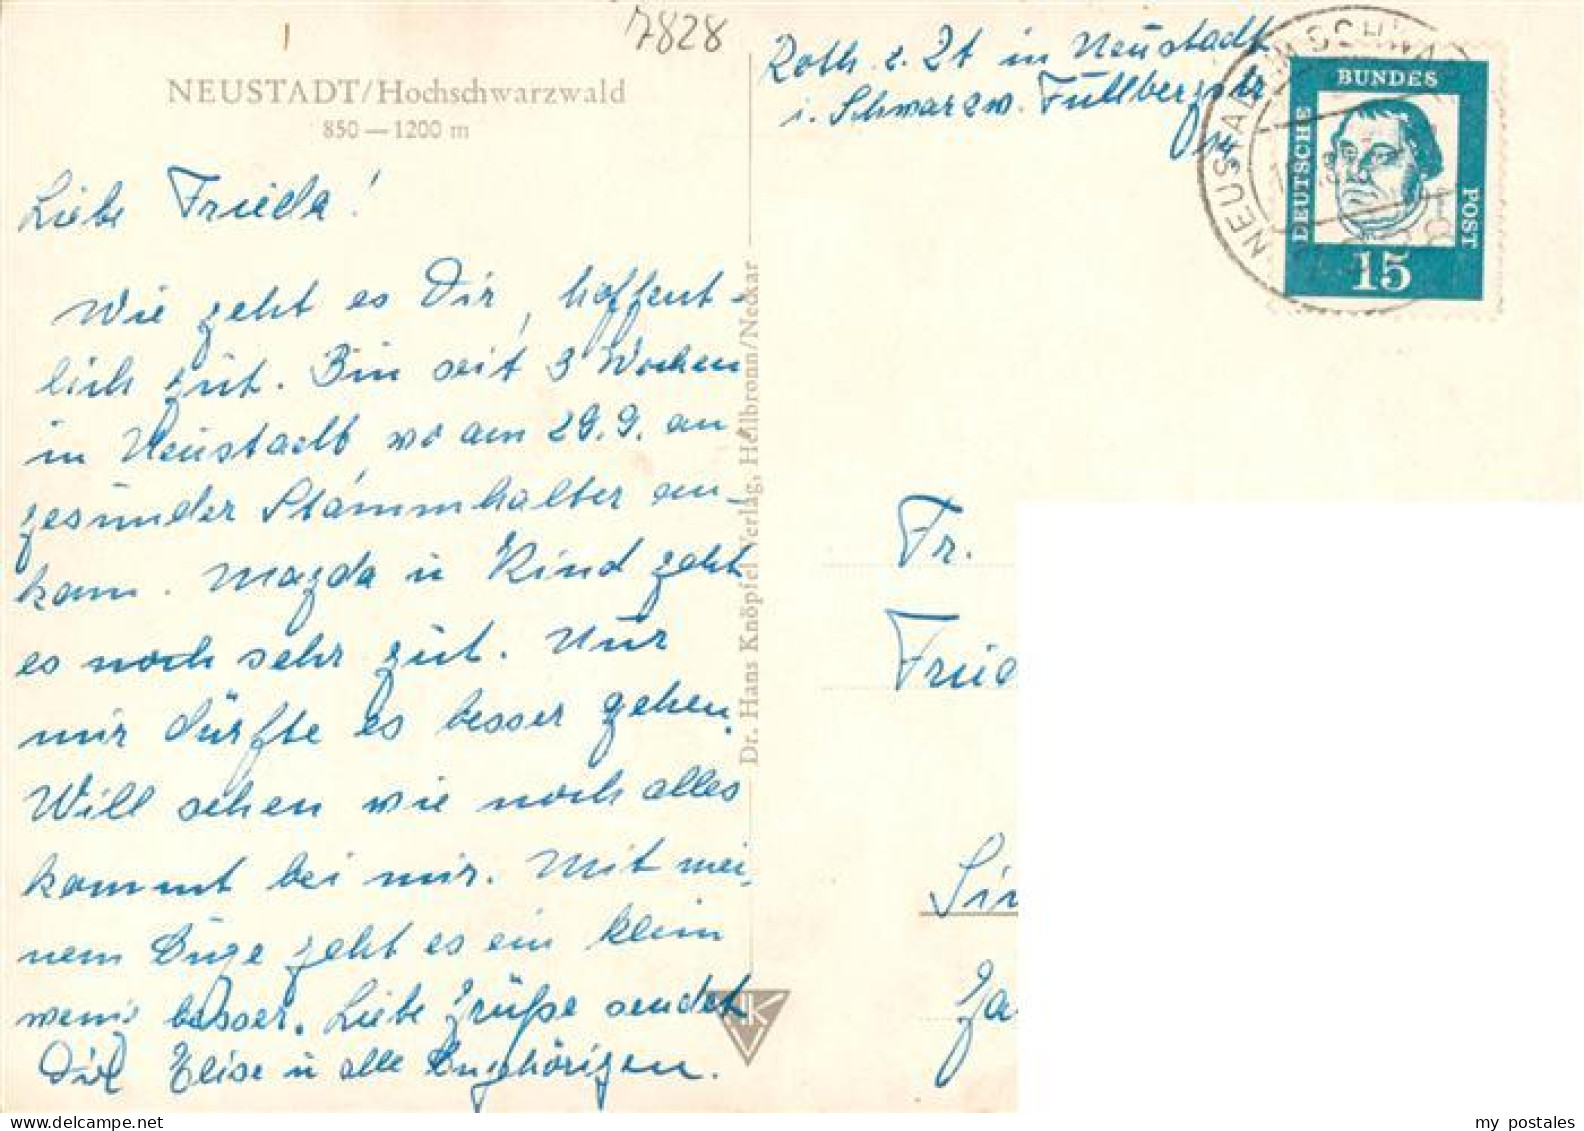 7828
NEUSTADT/Hochschwarzwald
850 — 1200 m
Liebe Frieda!
Wie geht es Dir, hoffent-
lich gut. Bin seit 3 Wochen
in Neustadt wo am 29.9. an
gesunder Stammhalter an-
kam. Magda u Kind geht
es noch sehr gut. Nur
mir dürfte es besser gehen.
Will sehen wie noch alles
kommt bei mir. Mit mei-
nem Auge geht es ein klein
wenig besser. Liebe Grüße sendet
Dir Elise u alle Angehörigen.
Dr. Hans Knöpfel Verlag, Heilbronn/Neckar
HK
Roth z. Zt in Neustadt
i. Schwarzw.
14
NEUSTADT IM SCHWARZW
DEUTSCHE
BUNDES
POST
15
Fr.
Fried
Sin
my postales